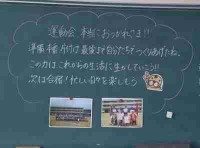 運動会 本当におつかれさま!!
準備・片付け 最後まで自分たちでつくりあげたね。
この力はこれからの生活に生かしていこう!!
次は合宿! 忙しい日々を楽しもう